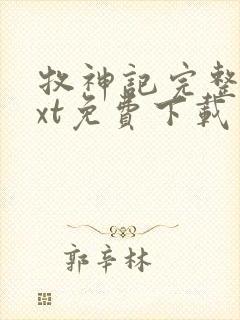 牧神記完整
xt免費下載
郭辛林